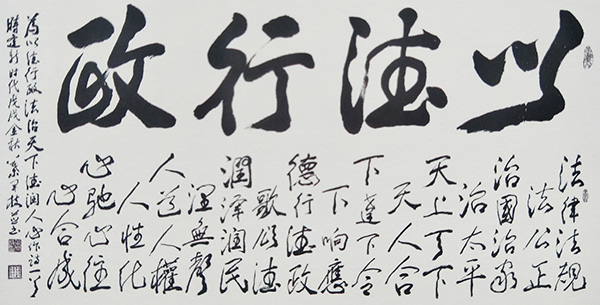 以德行政
法律法規
法公正
治國治家
治太平
天上天下
天人合
下達下令
下響應
德行德政
歌頌德
潤澤潤民
無聲
人道人權
人性化
心馳心往
心合成
為以德行政法治天下德潤人心作詩一首
時逢新时代戊戌金秋